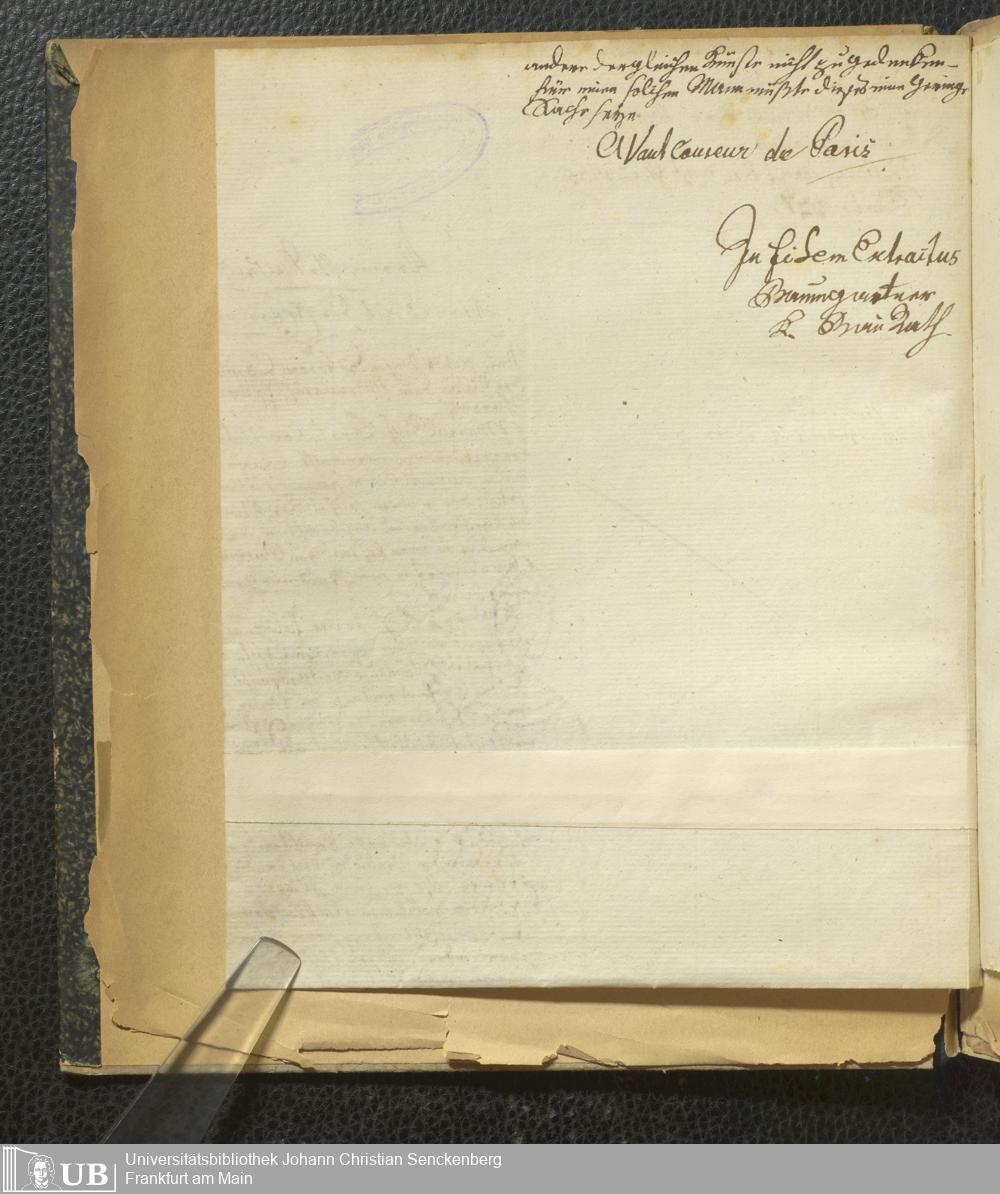 andere dergleichen Künste nicht zu gedenken –
für einen solchen Mann müßte dieses eine Geringe
Sache seyn
AVant Coureur de Paris
In fidem Extractus
Baumgartner
K. Rath
UB
Universitätsbibliothek Johann Christian Senckenberg
Frankfurt am Main